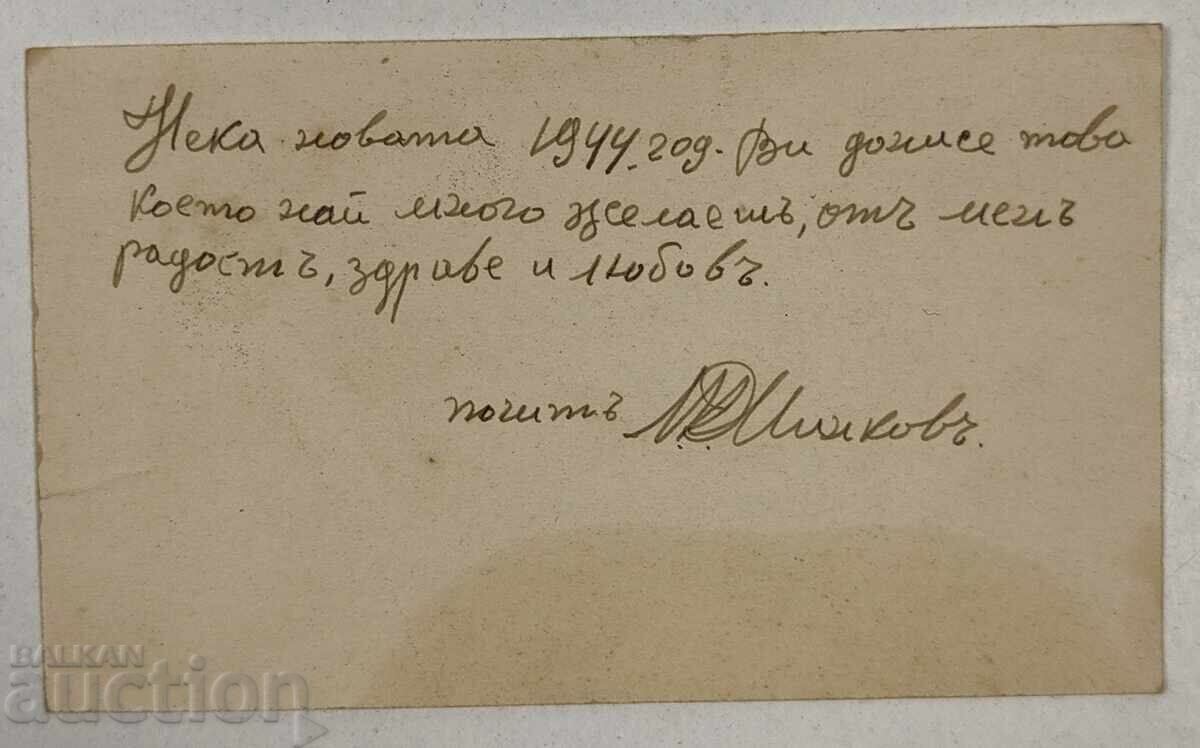 Нека новата 1944 год. Ви донесе това
което най много желаешъ, отъ менъ
радостъ, здраве и любовъ.
почитъ
BALKAN
auction